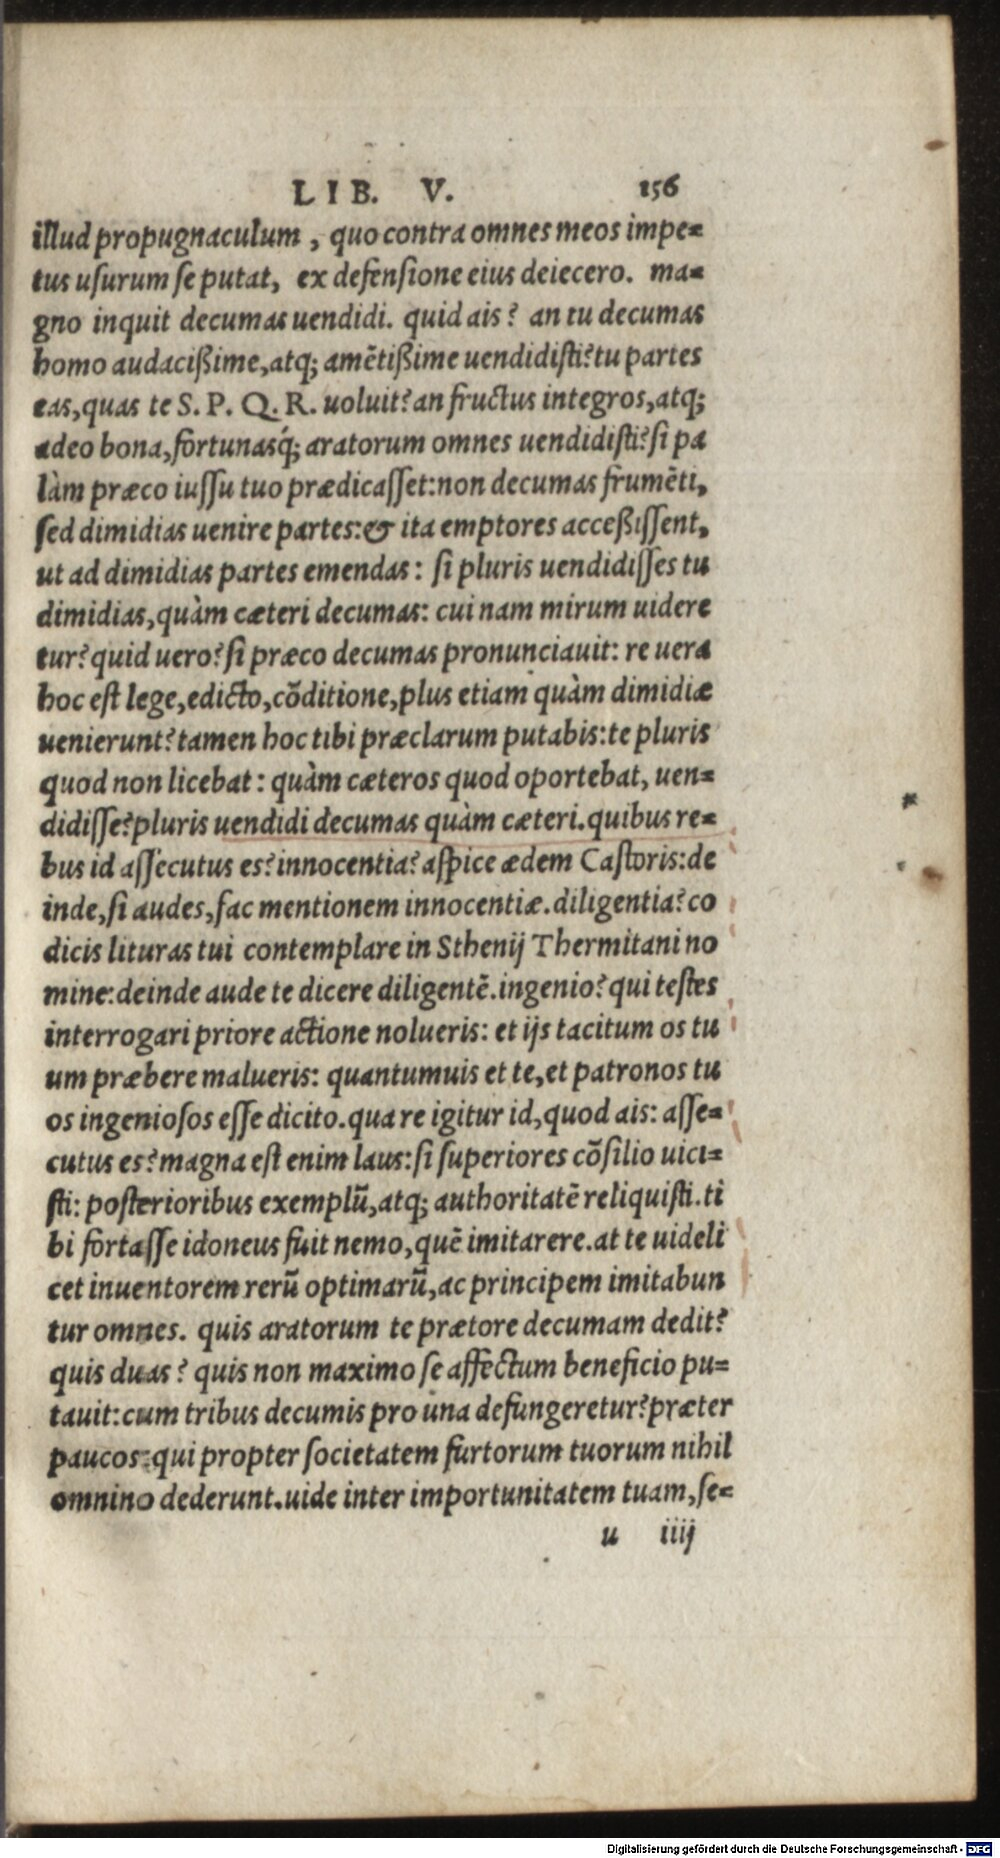 LIB. V. 156
illud propugnaculum, quo contra omnes meos impe=
tus usurum se putat, ex defensione eius deiecero. ma=
gno inquit decumas uendidi. quid ais? an tu decumas
homo audacißime, atq; amẽtißime uendidisti? tu partes
eas, quas te S. P. Q. R. uoluit? an fructus integros, atq;
adeo bona, fortunasq́; aratorum omnes uendidisti? si pa
làm præco iussu tuo prædicasset: non decumas frumẽti,
sed dimidias uenire partes: & ita emptores acceßissent,
ut ad dimidias partes emendas: si pluris uendidisses tu
dimidias, quàm cæteri decumas: cui nam mirum uidere
tur? quid uero? si præco decumas pronunciauit: re uera
hoc est lege, edicto, cõditione, plus etiam quàm dimidiæ
uenierunt? tamen hoc tibi præclarum putabis: te pluris
quod non licebat: quàm cæteros quod oportebat, uen=
didisse? pluris uendidi decumas quàm cæteri. quibus re=
bus id assecutus es? innocentia? aspice ædem Castoris: de
inde, si audes, fac mentionem innocentiæ. diligentia? co
dicis lituras tui contemplare in Sthenij Thermitani no
mine: deinde aude te dicere diligentẽ. ingenio? qui testes
interrogari priore actione nolueris: et ijs tacitum os tu
um præbere malueris: quantumuis et te, et patronos tu
os ingeniosos esse dicito. qua re igitur id, quod ais: asse=
cutus es? magna est enim laus: si superiores cõsilio uici=
sti: posterioribus exemplũ, atq; authoritatẽ reliquisti. ti
bi fortasse idoneus fuit nemo, quẽ imitarere. at te uideli
cet inuentorem rerũ optimarũ, ac principem imitabun
tur omnes. quis aratorum te prætore decumam dedit?
quis duas? quis non maximo se affectum beneficio pu=
tauit: cum tribus decumis pro una defungeretur? præter
paucos: qui propter societatem furtorum tuorum nihil
omnino dederunt. uide inter importunitatem tuam, se=
u iiij
Digitalisierung gefördert durch die Deutsche Forschungsgemeinschaft - DFG